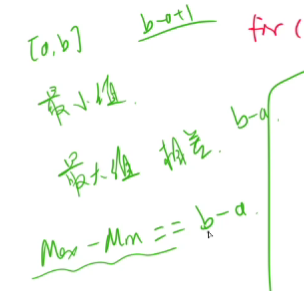 [a,b] b-a+1 for (
最小值.
最大值 相差. b-a.
Max - Min == b-a.